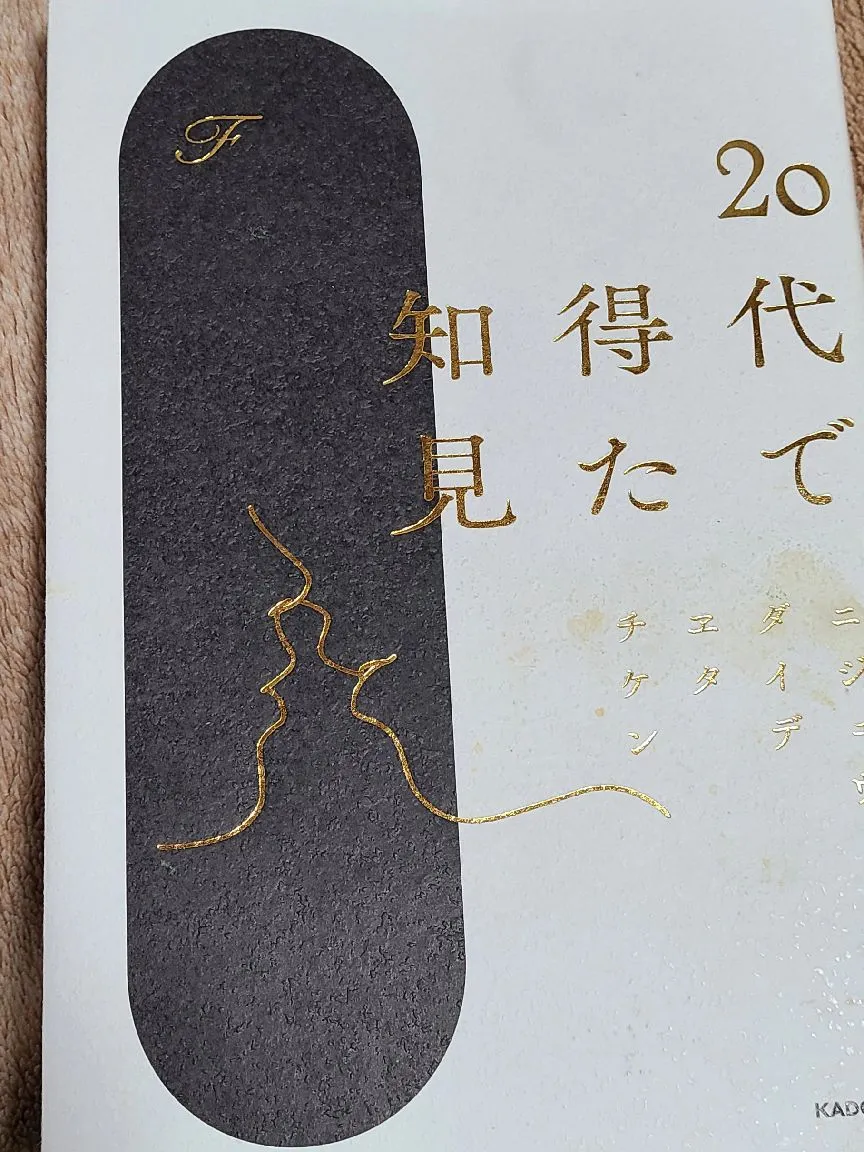 F
20代で
得た
知見
ニジュウ
ダイデ
ヱタ
チケン
KADO